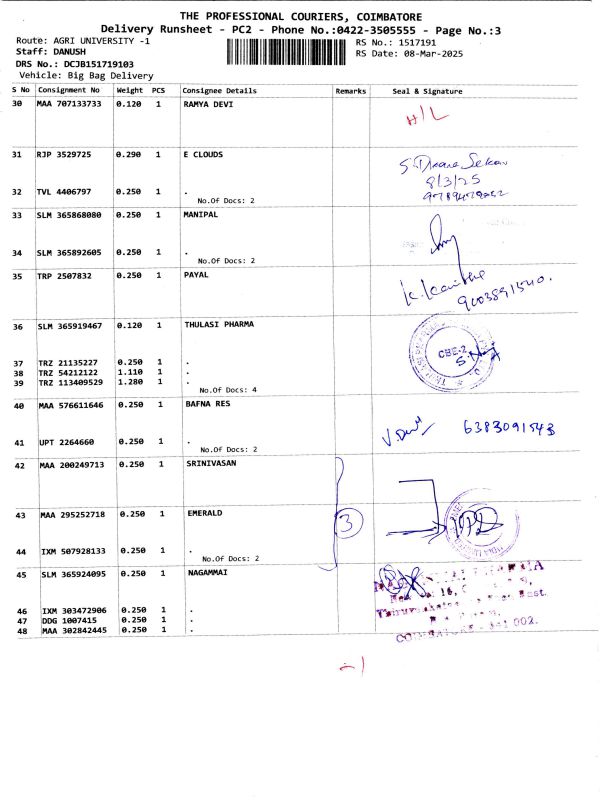 THE PROFESSIONAL COURIERS, COIMBATORE
Delivery Runsheet - PC2 - Phone No.:0422-3505555 - Page No.:3
Route: AGRI UNIVERSITY -1 RS No.: 1517191
Staff: DANUSH RS Date: 08-Mar-2025
DRS No.: DCJB151719103
Vehicle: Big Bag Delivery
S No Consignment No Weight PCS Consignee Details Remarks Seal & Signature
30 MAA 707133733 0.120 1 RAMYA DEVI
H/L
31 RJP 3529725 0.290 1 E CLOUDS
8/3/25
32 TVL 4406797 0.250 1 .
No.Of Docs: 2
33 SLM 365868080 0.250 1 MANIPAL
34 SLM 365892605 0.250 1 .
No.Of Docs: 2
35 TRP 2507832 0.250 1 PAYAL
9003891540.
36 SLM 365919467 0.120 1 THULASI PHARMA
CBE-2
37 TRZ 21135227 0.250 1 .
38 TRZ 54212122 1.110 1 .
39 TRZ 113409529 1.280 1 .
No.Of Docs: 4
40 MAA 576611646 0.250 1 BAFNA RES
6383091543
41 UPT 2264660 0.250 1 .
No.Of Docs: 2
42 MAA 200249713 0.250 1 SRINIVASAN
43 MAA 295252718 0.250 1 EMERALD
3
44 IXM 507928133 0.250 1 .
No.Of Docs: 2
45 SLM 365924095 0.250 1 NAGAMMAI
46 IXM 303472906 0.250 1 .
47 DDG 1007415 0.250 1 .
48 MAA 302842445 0.250 1 .